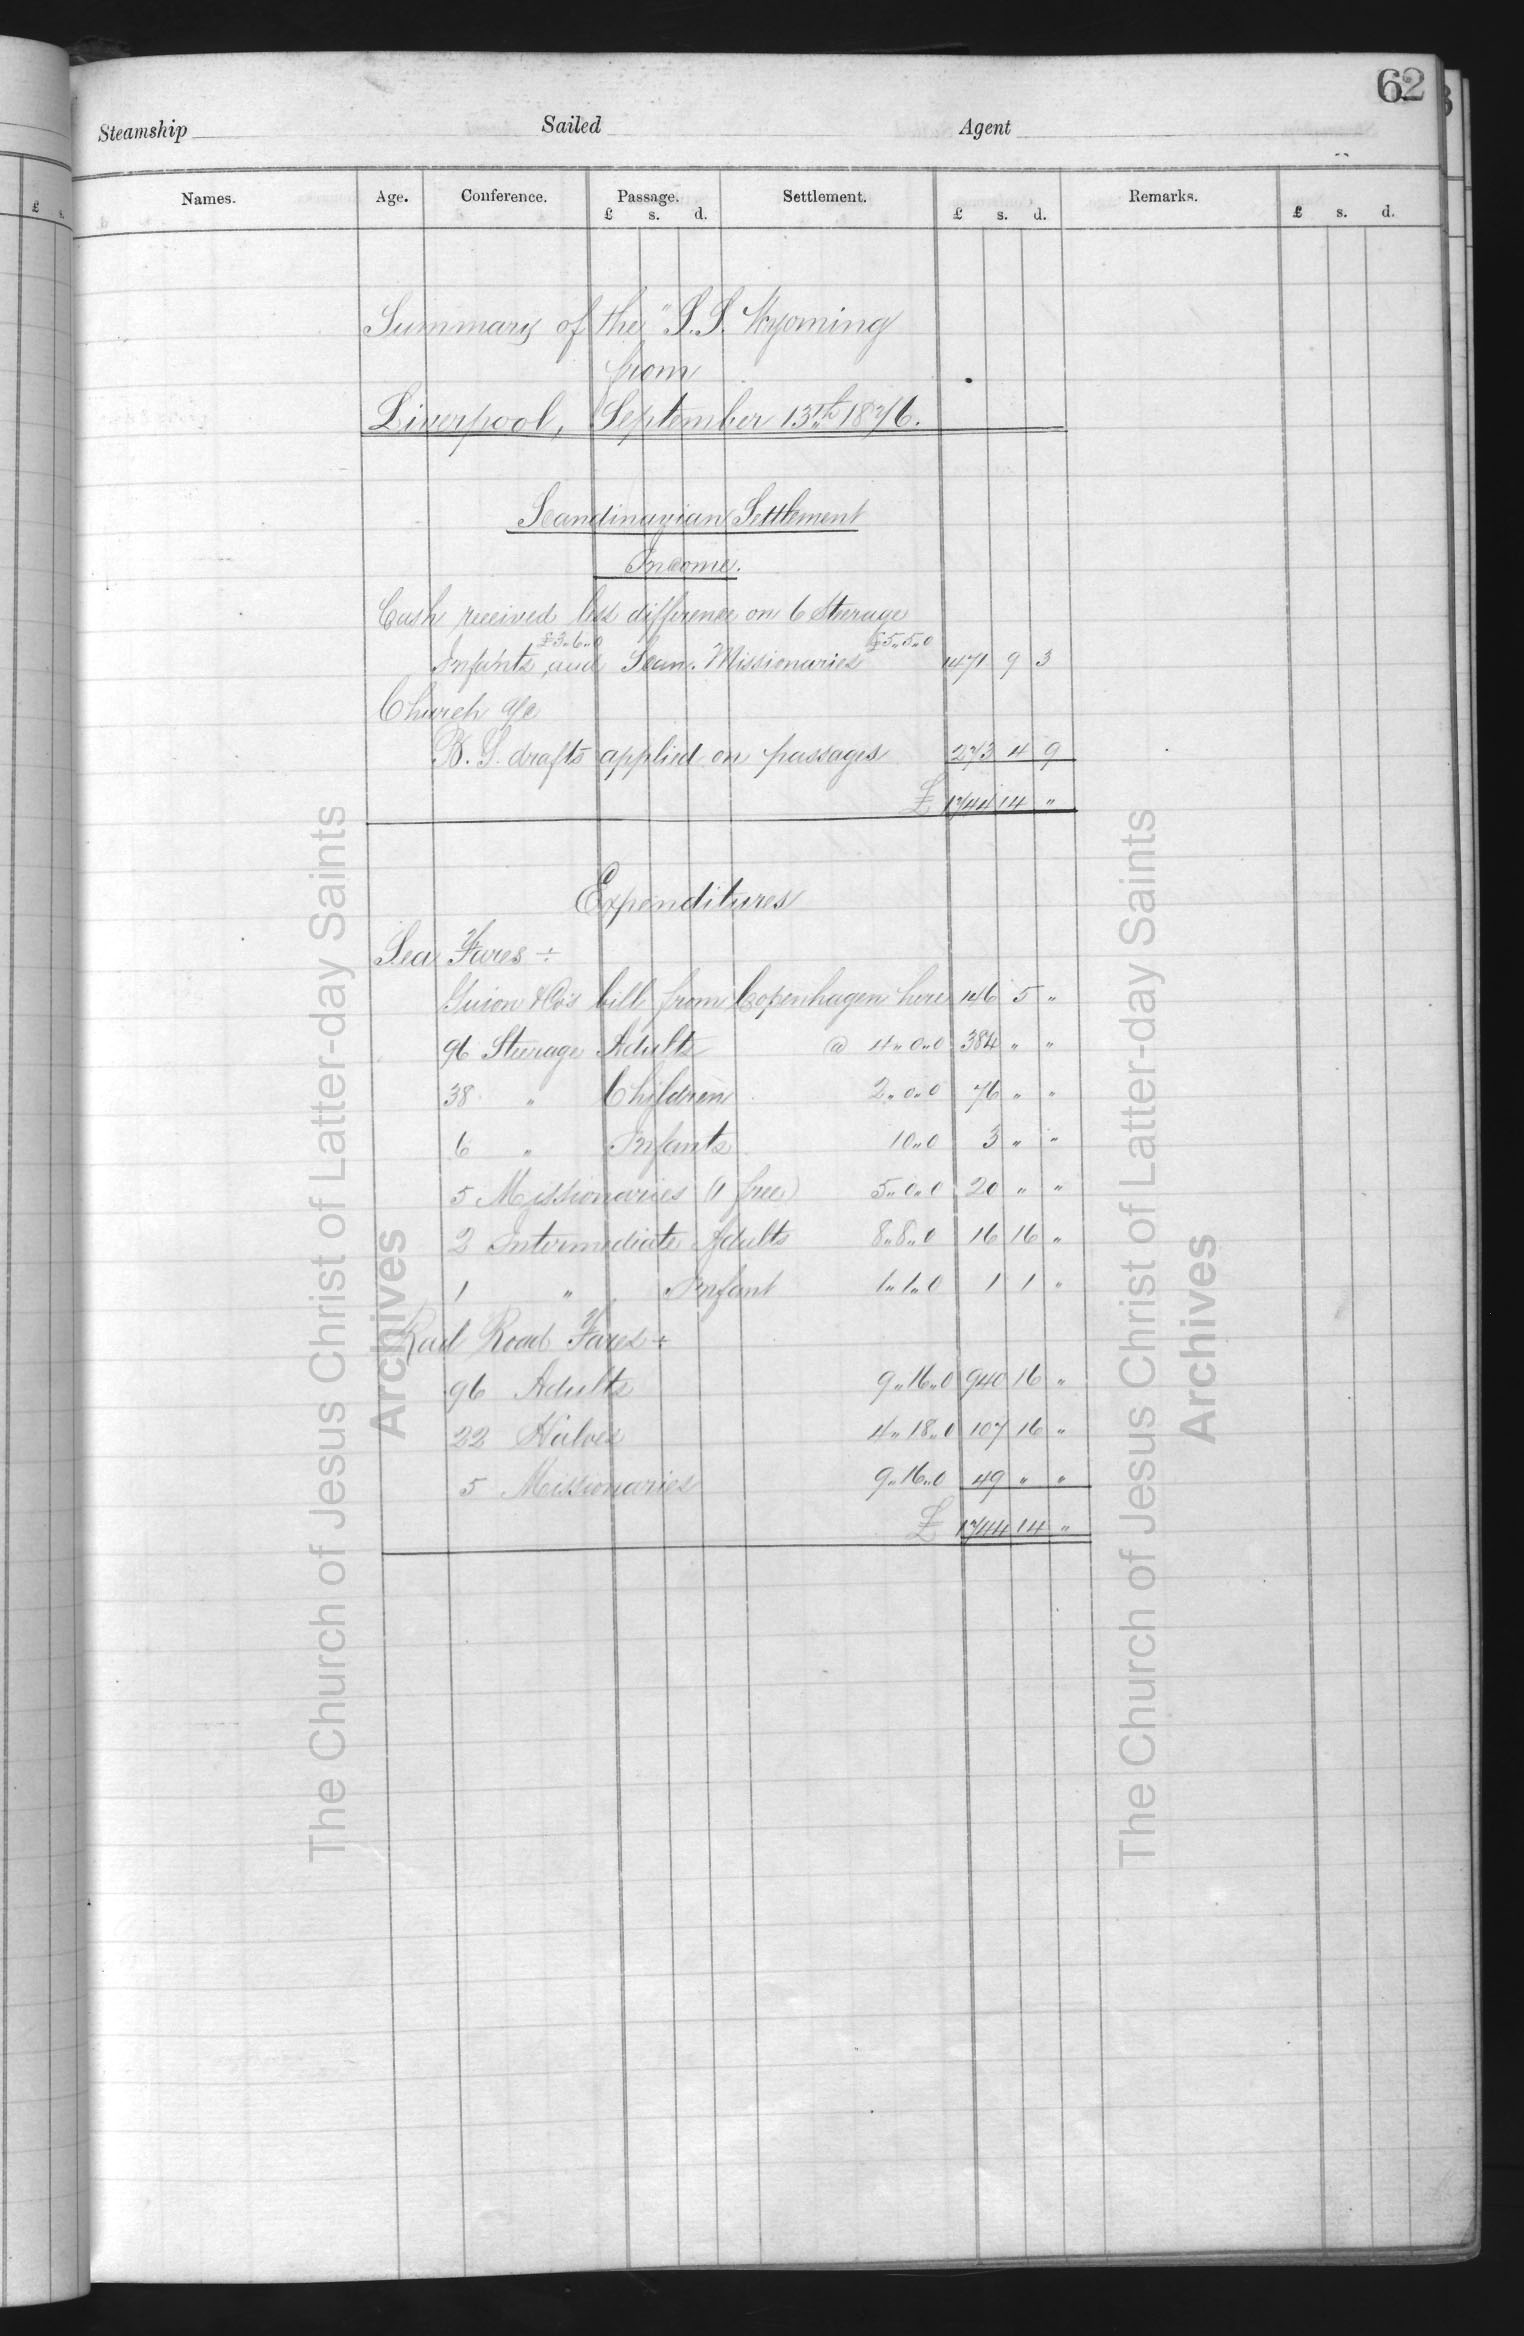 62
Steamship Sailed Agent
Names. Age. Conference. Passage. Settlement. Remarks.
£ s. £ s. d. £ s. d. £ s. d.
Summary of the "S.S. Wyoming
from
Liverpool, September 13th 1876.
Scandinavian Settlement
Income.
Cash received less difference on 6 Sterage
£3..6..0 £5..5..0
Infants, and Scan. Missionaries 1471 9 3
Church a/c
B. drafts applied on passages 273 4 9
£ 1744 14 "
Expenditures
Sea Fares ÷
Guion & Co's bill from Copenhagen here 146 5 "
96 Sterage Adults @ 4..0..0 384 " "
38 " Children 2..0..0 76 " "
6 " Infants 10..0 3 " "
5 Missionaries (1 free) 5..0..0 20 " "
2 Intermediate Adults 8..8..0 16 16 "
1 " Infant 1..1..0 1 1 "
Rail Road Fares ÷
96 Adults 9..16..0 940 16 "
22 Halves 4..18..0 107 16 "
5 Missionaries 9..16..0 49 " "
£ 1744 14 "
The Church of Jesus Christ of Latter-day Saints
Archives
The Church of Jesus Christ of Latter-day Saints
Archives